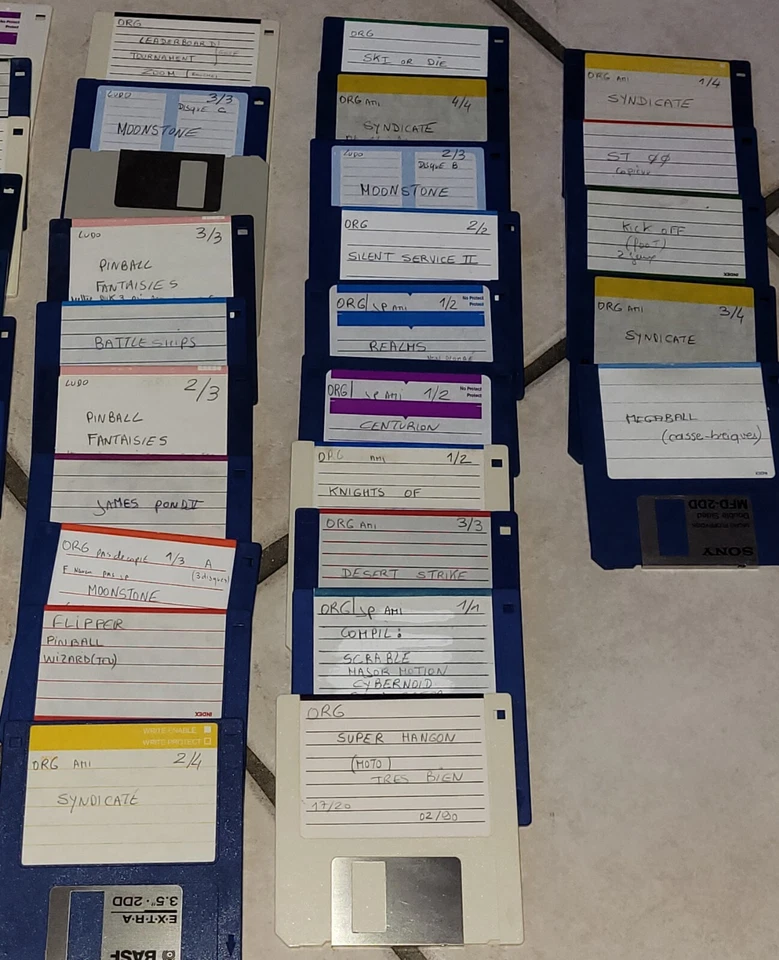 ORG
LEADERBOARD
TOURNAMENT
ZOOM
LUDO 3/3
DISQUE C
MOONSTONE
LUDO 3/3
PINBALL
FANTAISIES
BATTLESHIPS
LUDO 2/3
PINBALL
FANTAISIES
JAMES POND II
ORG pas de copie 1/3 A
(3 disques)
MOONSTONE
FLIPPER
PINBALL
WIZARD (TCU)
INDEX
WRITE ENABLE
WRITE PROTECT
ORG AMI 2/4
SYNDICATE
BASF
EXTRA
3.5" 2DD
ORG
SKI OR DIE
ORG AMI 4/4
SYNDICATE
LUDO 2/3
DISQUE B
MOONSTONE
ORG 2/2
SILENT SERVICE II
ORG/JP AMI 1/2
No Protect
Protect
REALMS
ORG/JP AMI 1/2
No Protect
Protect
CENTURION
ORG AMI 1/2
KNIGHTS OF
ORG AMI 3/3
DESERT STRIKE
ORG/JP AMI 1/1
COMPIL:
SCRABLE
MAJOR MOTION
CYBERNOID
ORG
SUPER HANGON
(MOTO)
TRES BIEN
17/20
02/90
ORG AMI 1/4
SYNDICATE
ST 00
KICK OFF
(foot)
INDEX
ORG AMI 3/4
SYNDICATE
MEGABALL
(casse-briques)
INDEX
SONY
Double Sided
MFD-2DD